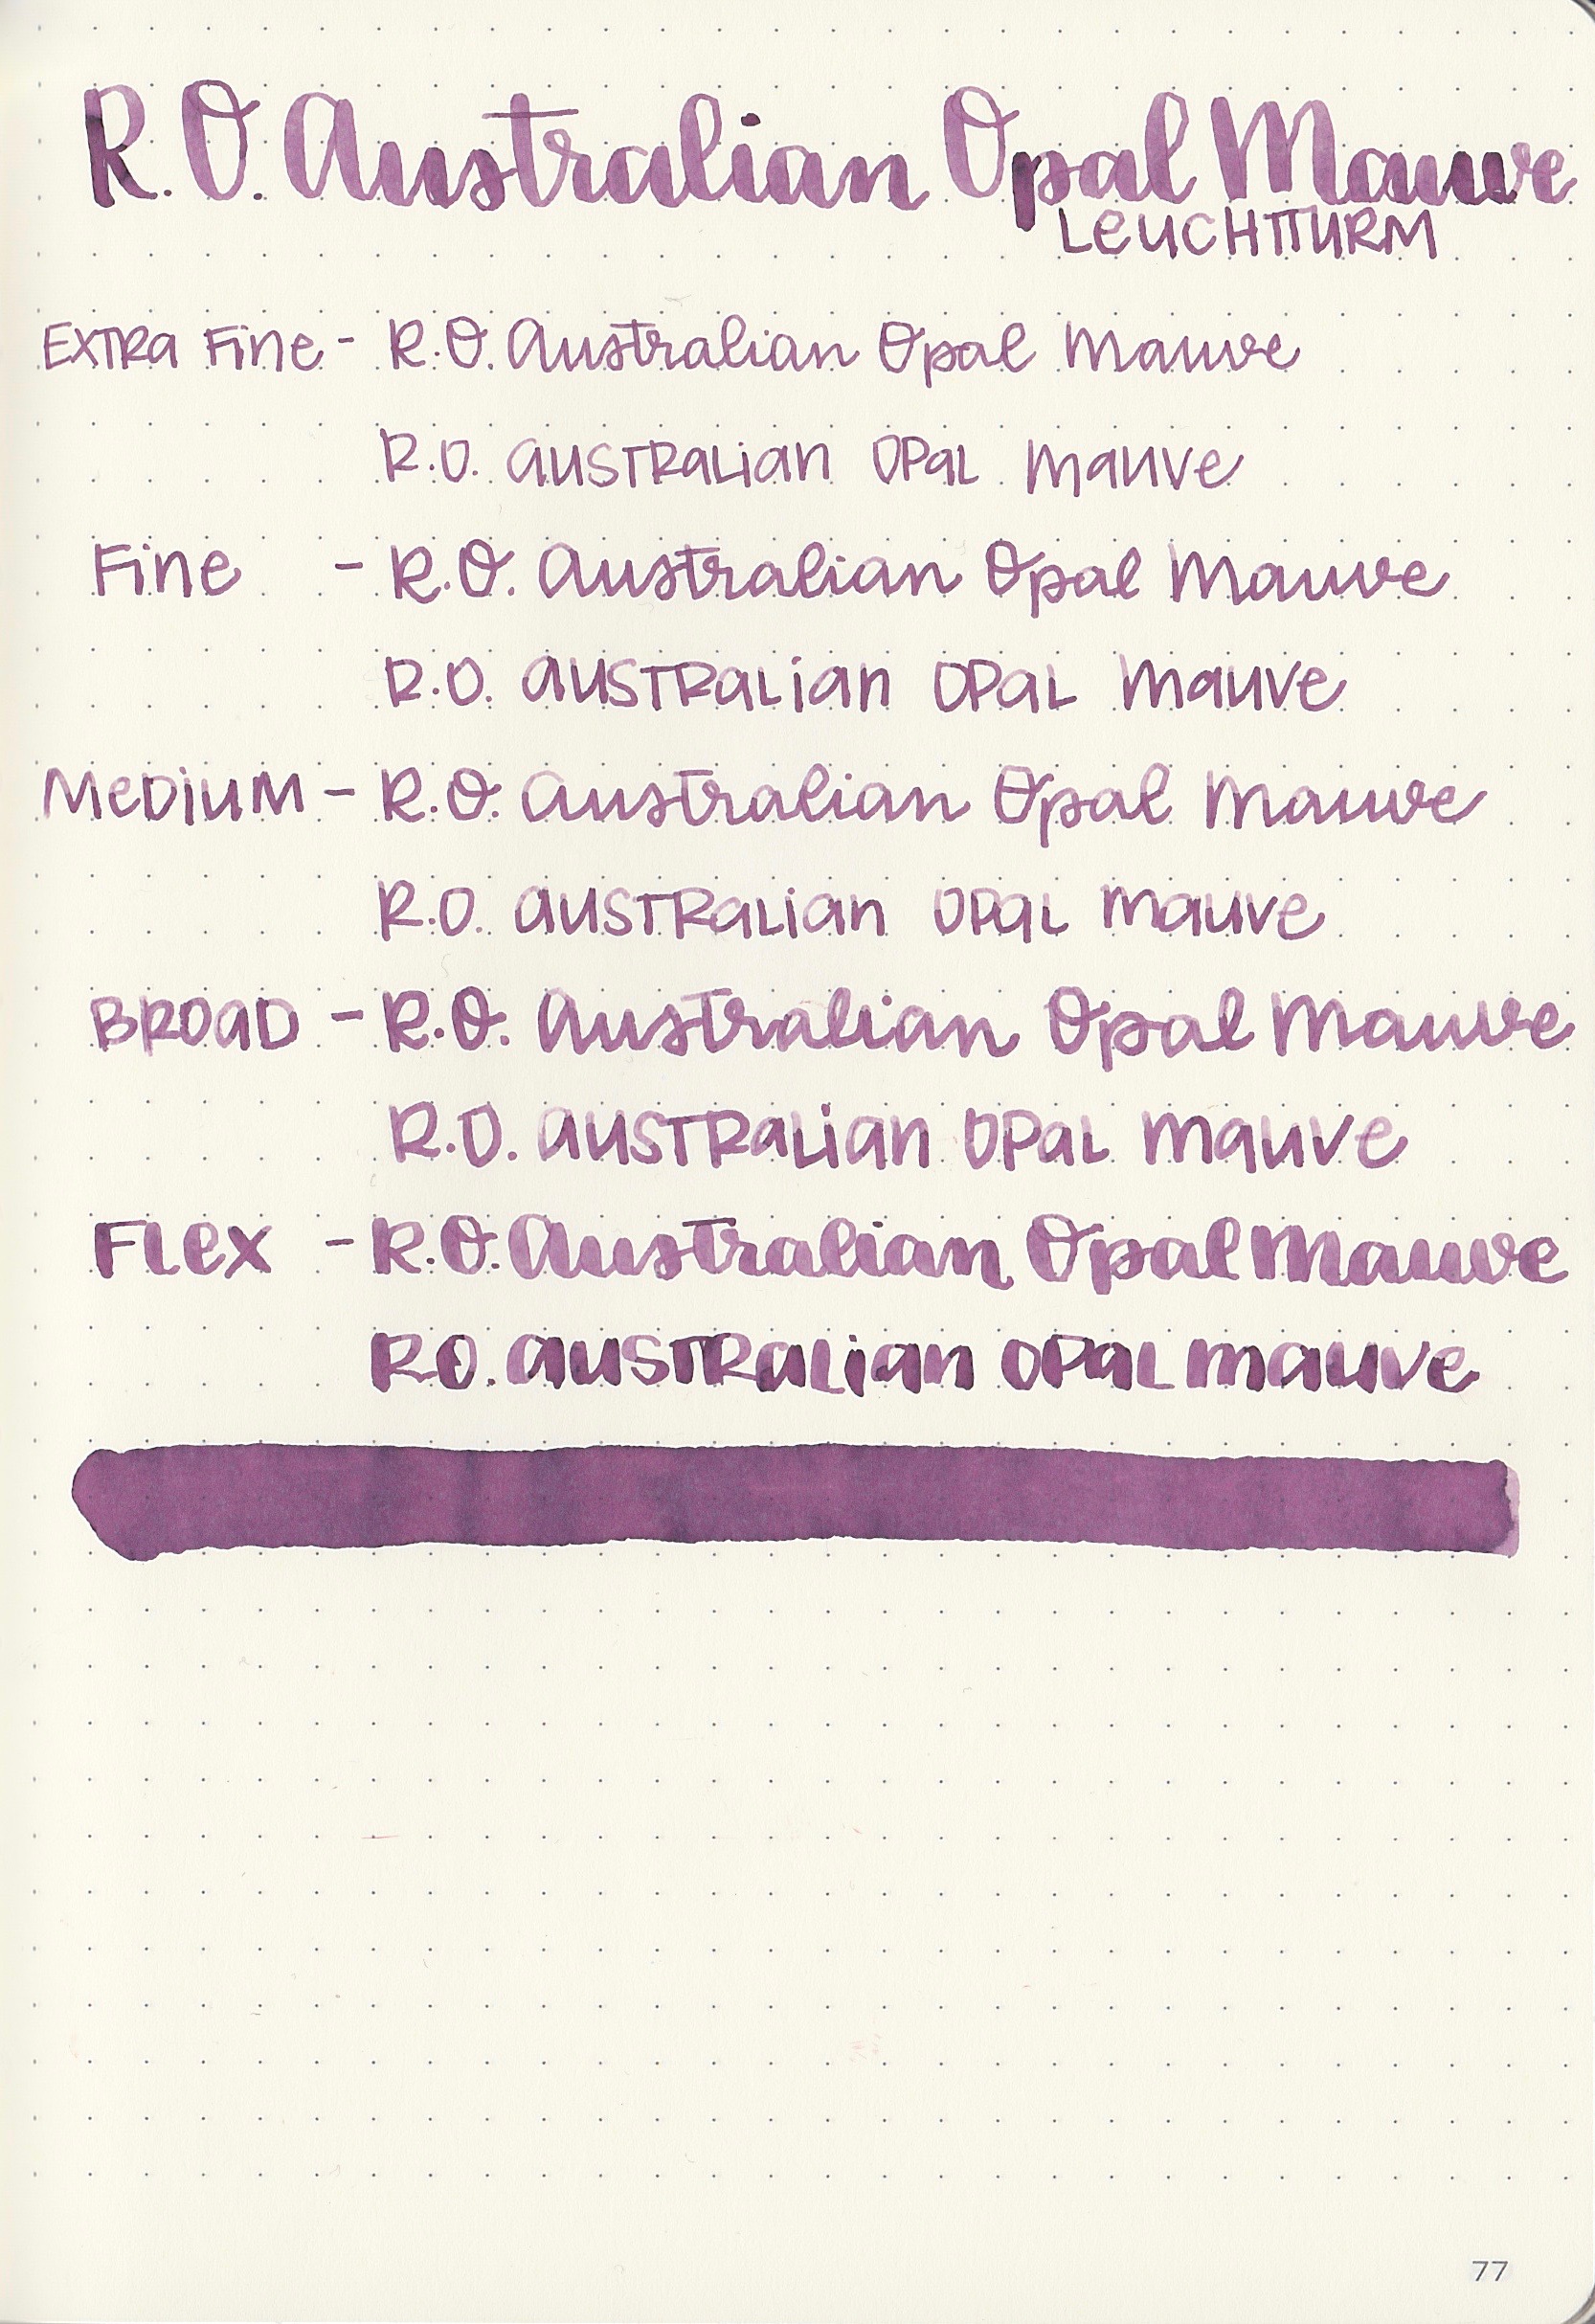 R.O. Australian Opal Mauve
LEUCHTTURM
EXTRA FINE - R.O. Australian Opal Mauve
R.O. AUSTRALIAN OPAL MAUVE
FINE - R.O. Australian Opal Mauve
R.O. AUSTRALIAN OPAL MAUVE
MEDIUM - R.O. Australian Opal Mauve
R.O. AUSTRALIAN OPAL MAUVE
BROAD - R.O. Australian Opal Mauve
R.O. AUSTRALIAN OPAL MAUVE
FLEX - R.O. Australian Opal Mauve
R.O. AUSTRALIAN OPAL MAUVE
77